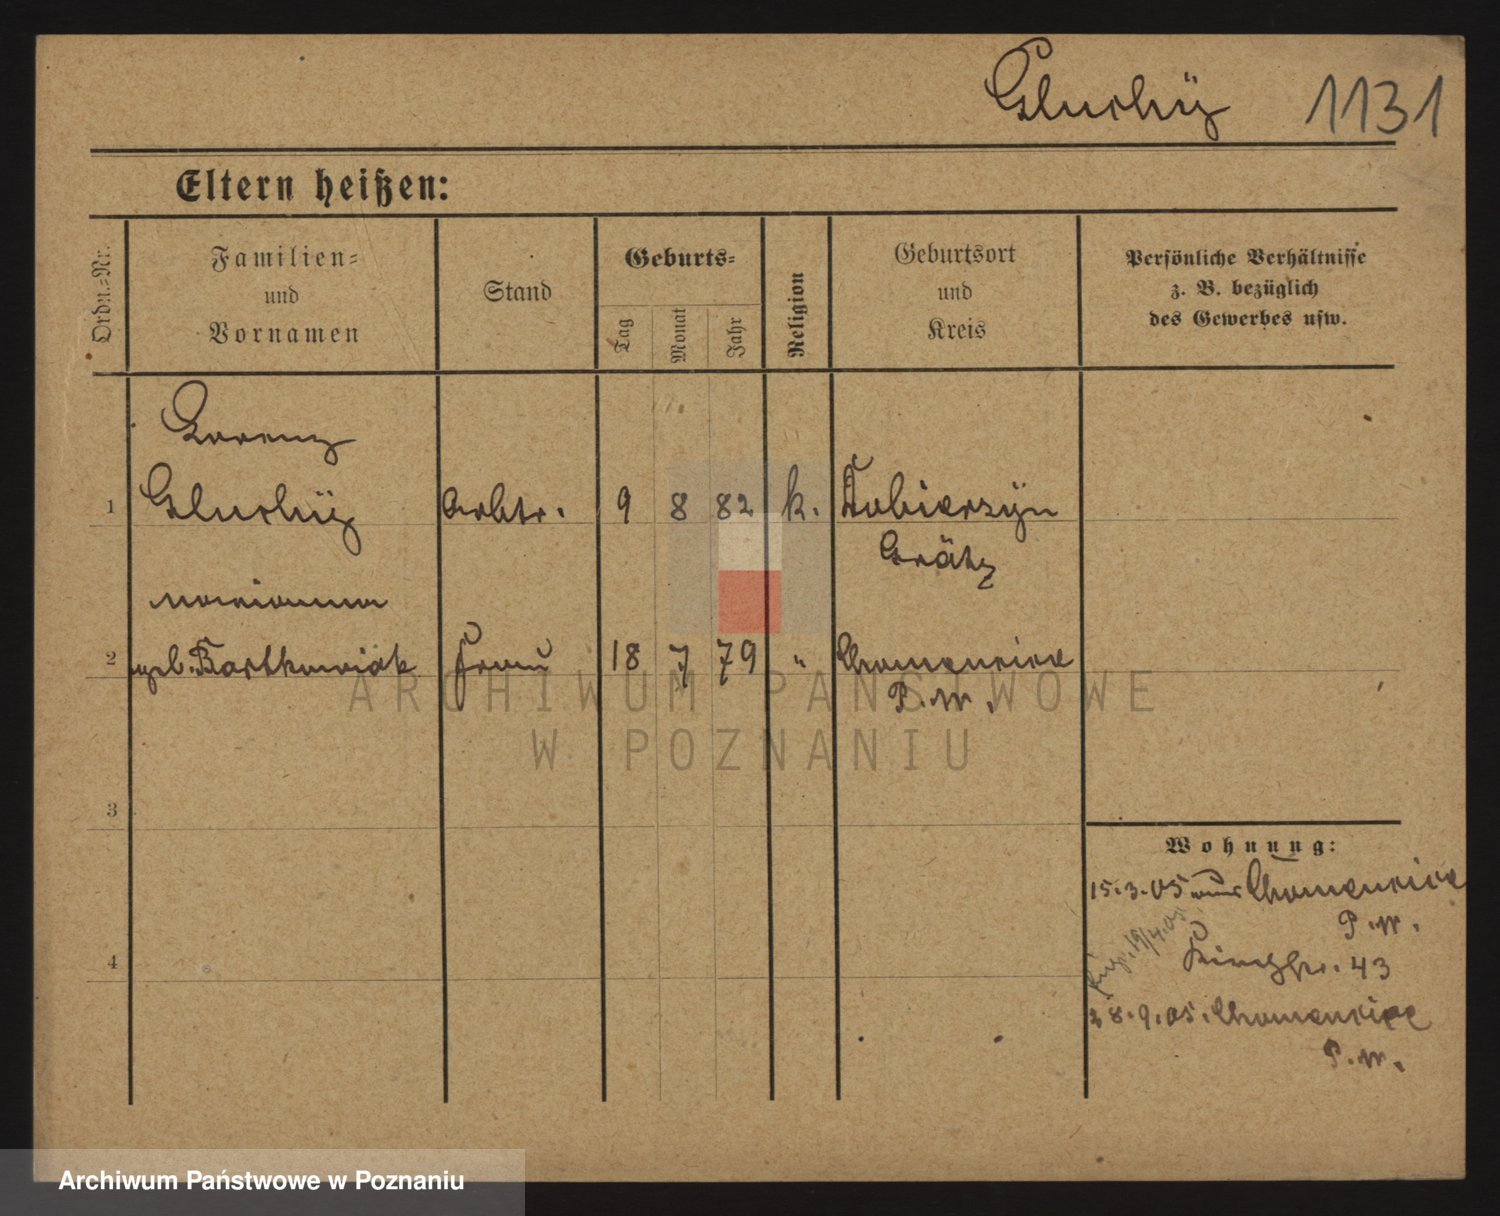 Gluchÿ 1131
Eltern heißen:
Ordn.=Nr.
Familien=
und
Vornamen
Stand
Geburts=
Tag
Monat
Jahr
Religion
Geburtsort
und
Kreis
Persönliche Verhältnisse
z. B. bezüglich
des Gewerbes usw.
Lorenz
1 Gluchÿ Arbtr. 9 8 82 k. Dobierzÿn
Grätz
Marianna
2 geb. Bartkowiak Frau 18 7 79 " Chomencice
P. W.
ARCHIWUM PAŃSTWOWE
W POZNANIU
3
Wohnung:
15.3.05 aus Chomencice
P. W.
19/4.05
43
4
28.9.05. Chomencice
P. W.
Archiwum Państwowe w Poznaniu